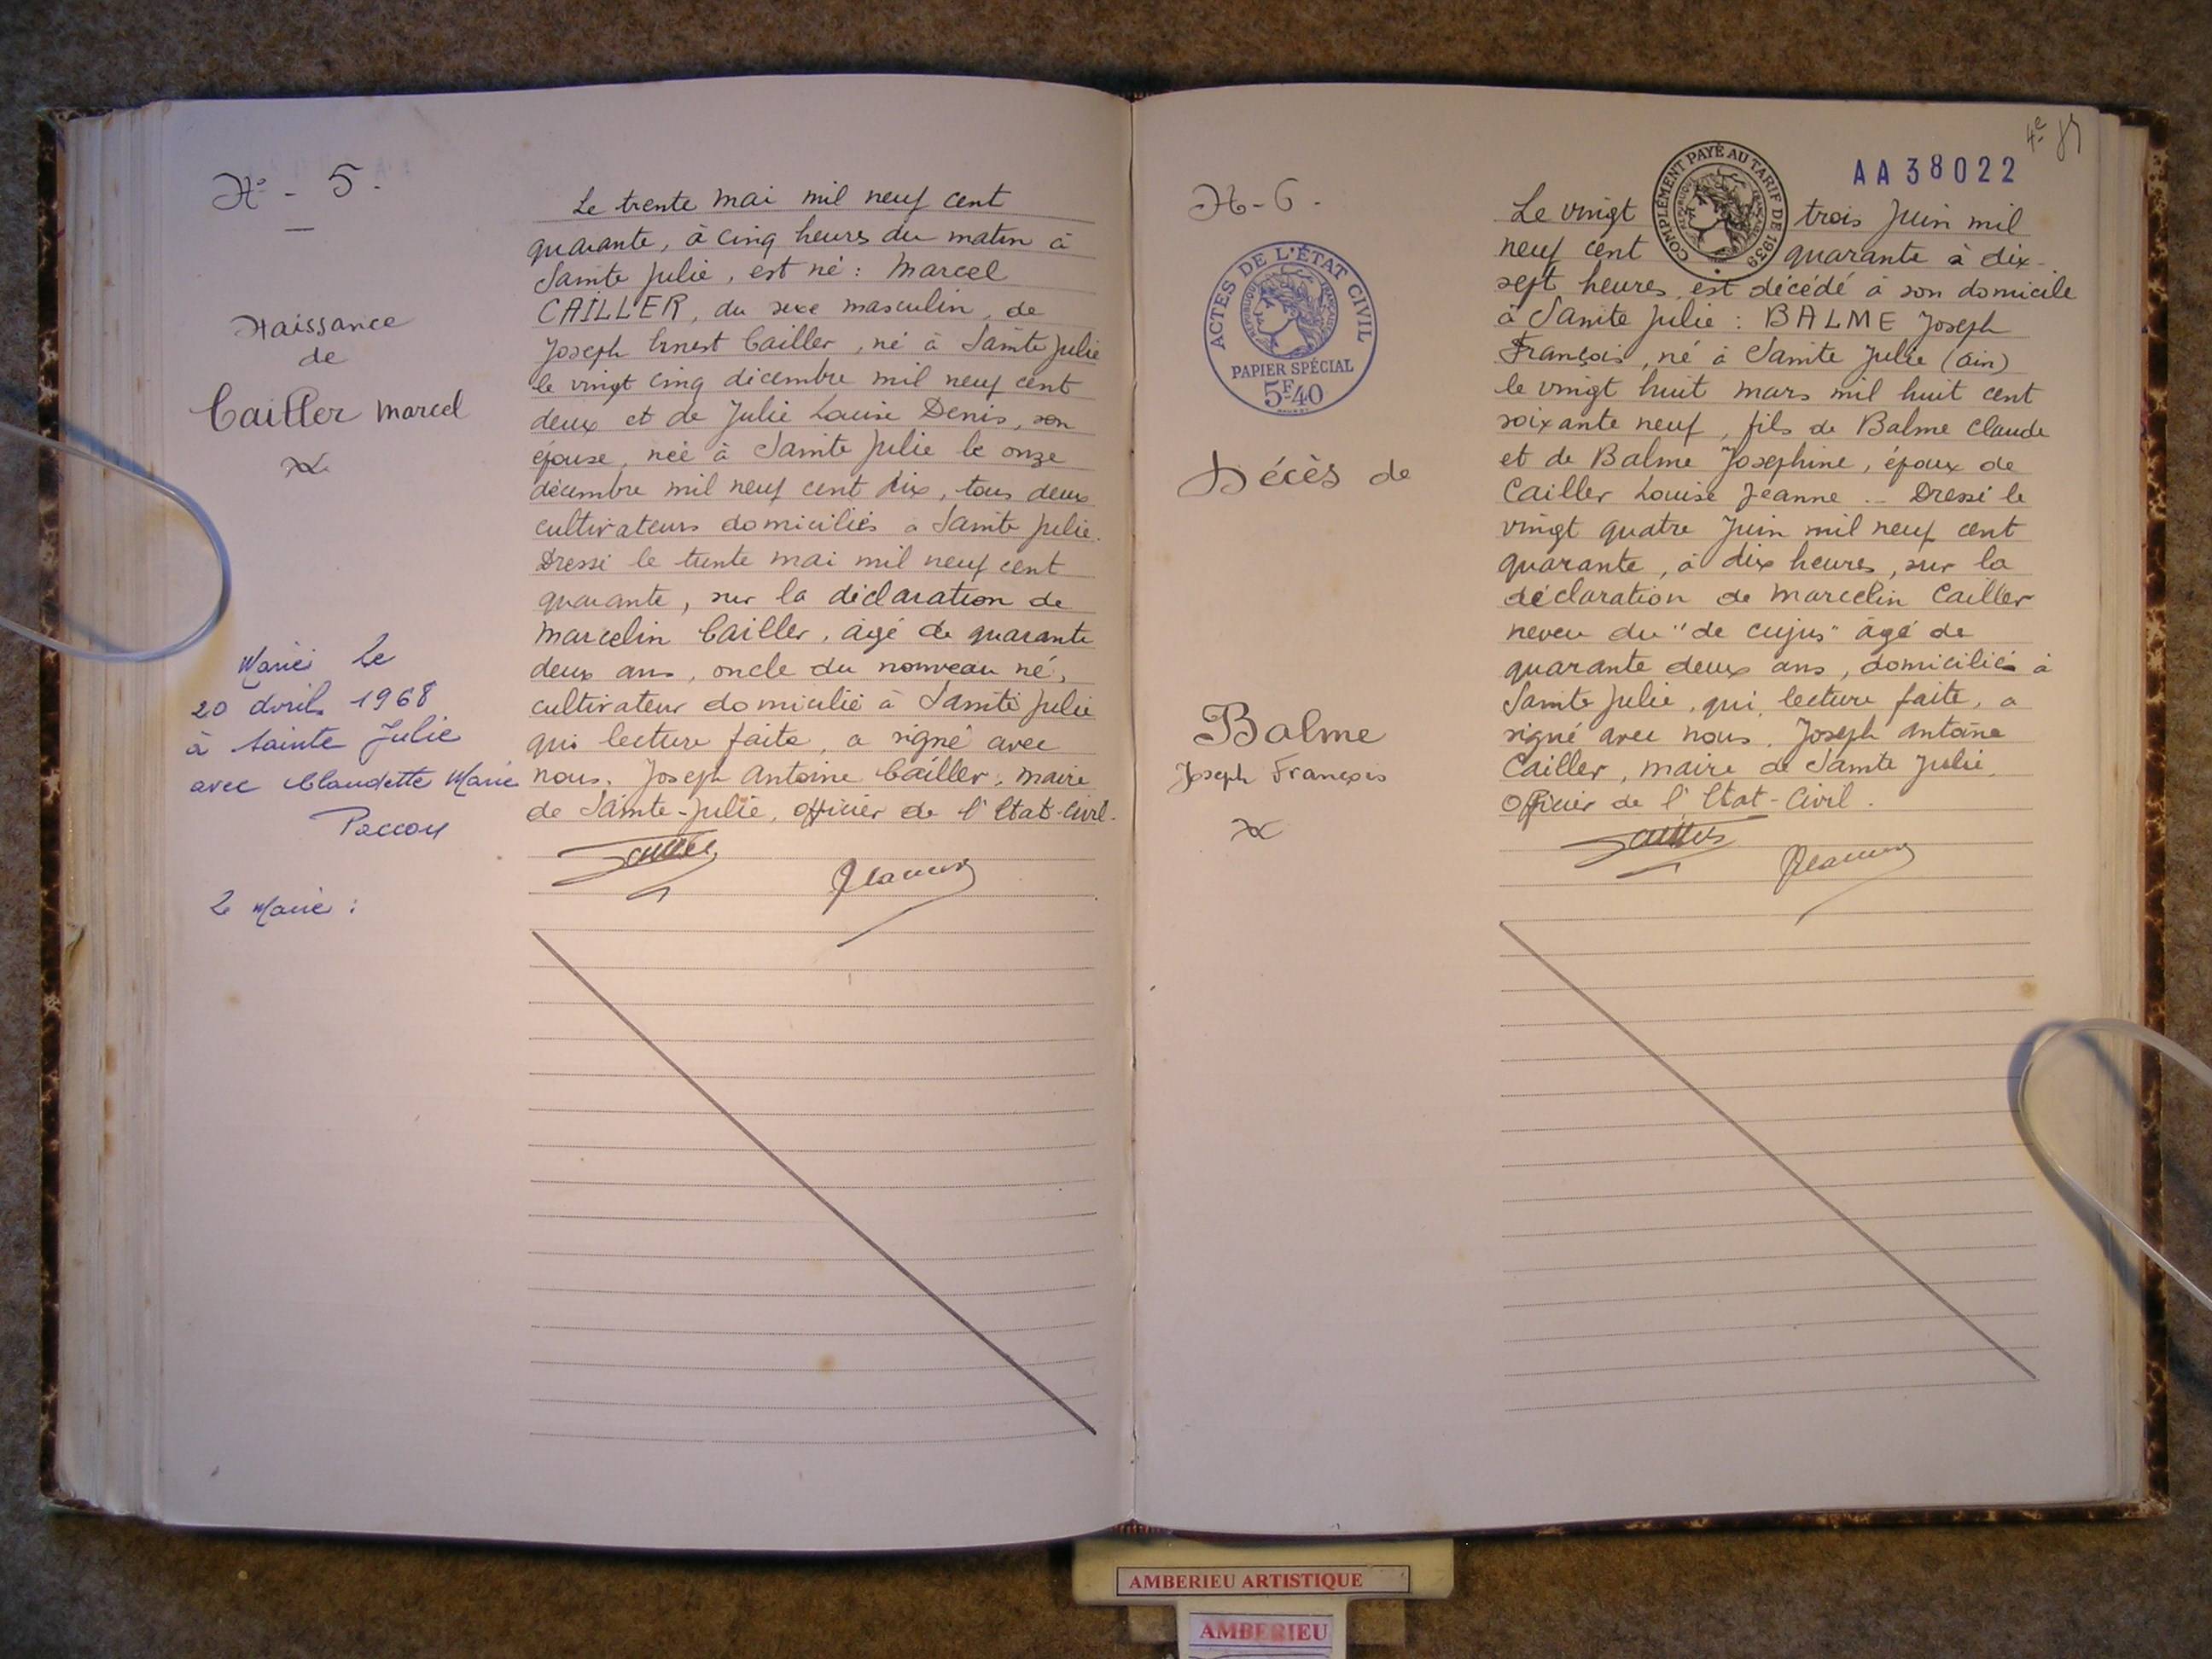 N° - 5 -
Naissance
de
Cailler Marcel
Marié le
20 avril 1968
à Sainte Julie
avec Claudette Marie
Paccou
Le Maire :
Le trente mai mil neuf cent
quarante, à cinq heures du matin à
Sainte Julie, est né : Marcel
CAILLER, du sexe masculin, de
Joseph Ernest Cailler, né à Sainte Julie
le vingt cinq décembre mil neuf cent
deux et de Julie Louise Denis, son
épouse, née à Sainte Julie le onze
décembre mil neuf cent dix, tous deux
cultivateurs domiciliés à Sainte Julie.
Dressé le trente mai mil neuf cent
quarante, sur la déclaration de
Marcelin Cailler, âgé de quarante
deux ans, oncle du nouveau né,
cultivateur domicilié à Sainte Julie
qui lecture faite, a signé avec
nous. Joseph Antoine Cailler, maire
de Sainte-Julie, officier de l'Etat-Civil.
N-6.
ACTES DE L'ÉTAT CIVIL
RÉPUBLIQUE FRANÇAISE
PAPIER SPÉCIAL
5F40
Décès de
Balme
Joseph François
4e
AA38022
COMPLÉMENT PAYÉ AU TARIF DE 1939
RÉPUBLIQUE FRANÇAISE
Le vingt trois Juin mil
neuf cent quarante à dix-
sept heures, est décédé à son domicile
à Sainte Julie : BALME Joseph
François, né à Sainte Julie (Ain)
le vingt huit mars mil huit cent
soixante neuf, fils de Balme Claude
et de Balme Josephine, époux de
Cailler Louise Jeanne .- Dressé le
vingt quatre Juin mil neuf cent
quarante, à dix heures, sur la
déclaration de Marcelin Cailler
neveu du "de cujus" âgé de
quarante deux ans, domicilié à
Sainte Julie, qui, lecture faite, a
signé avec nous. Joseph Antoine
Cailler, maire de Sainte Julie,
Officier de l'Etat-Civil.
AMBERIEU ARTISTIQUE
AMBERIEU